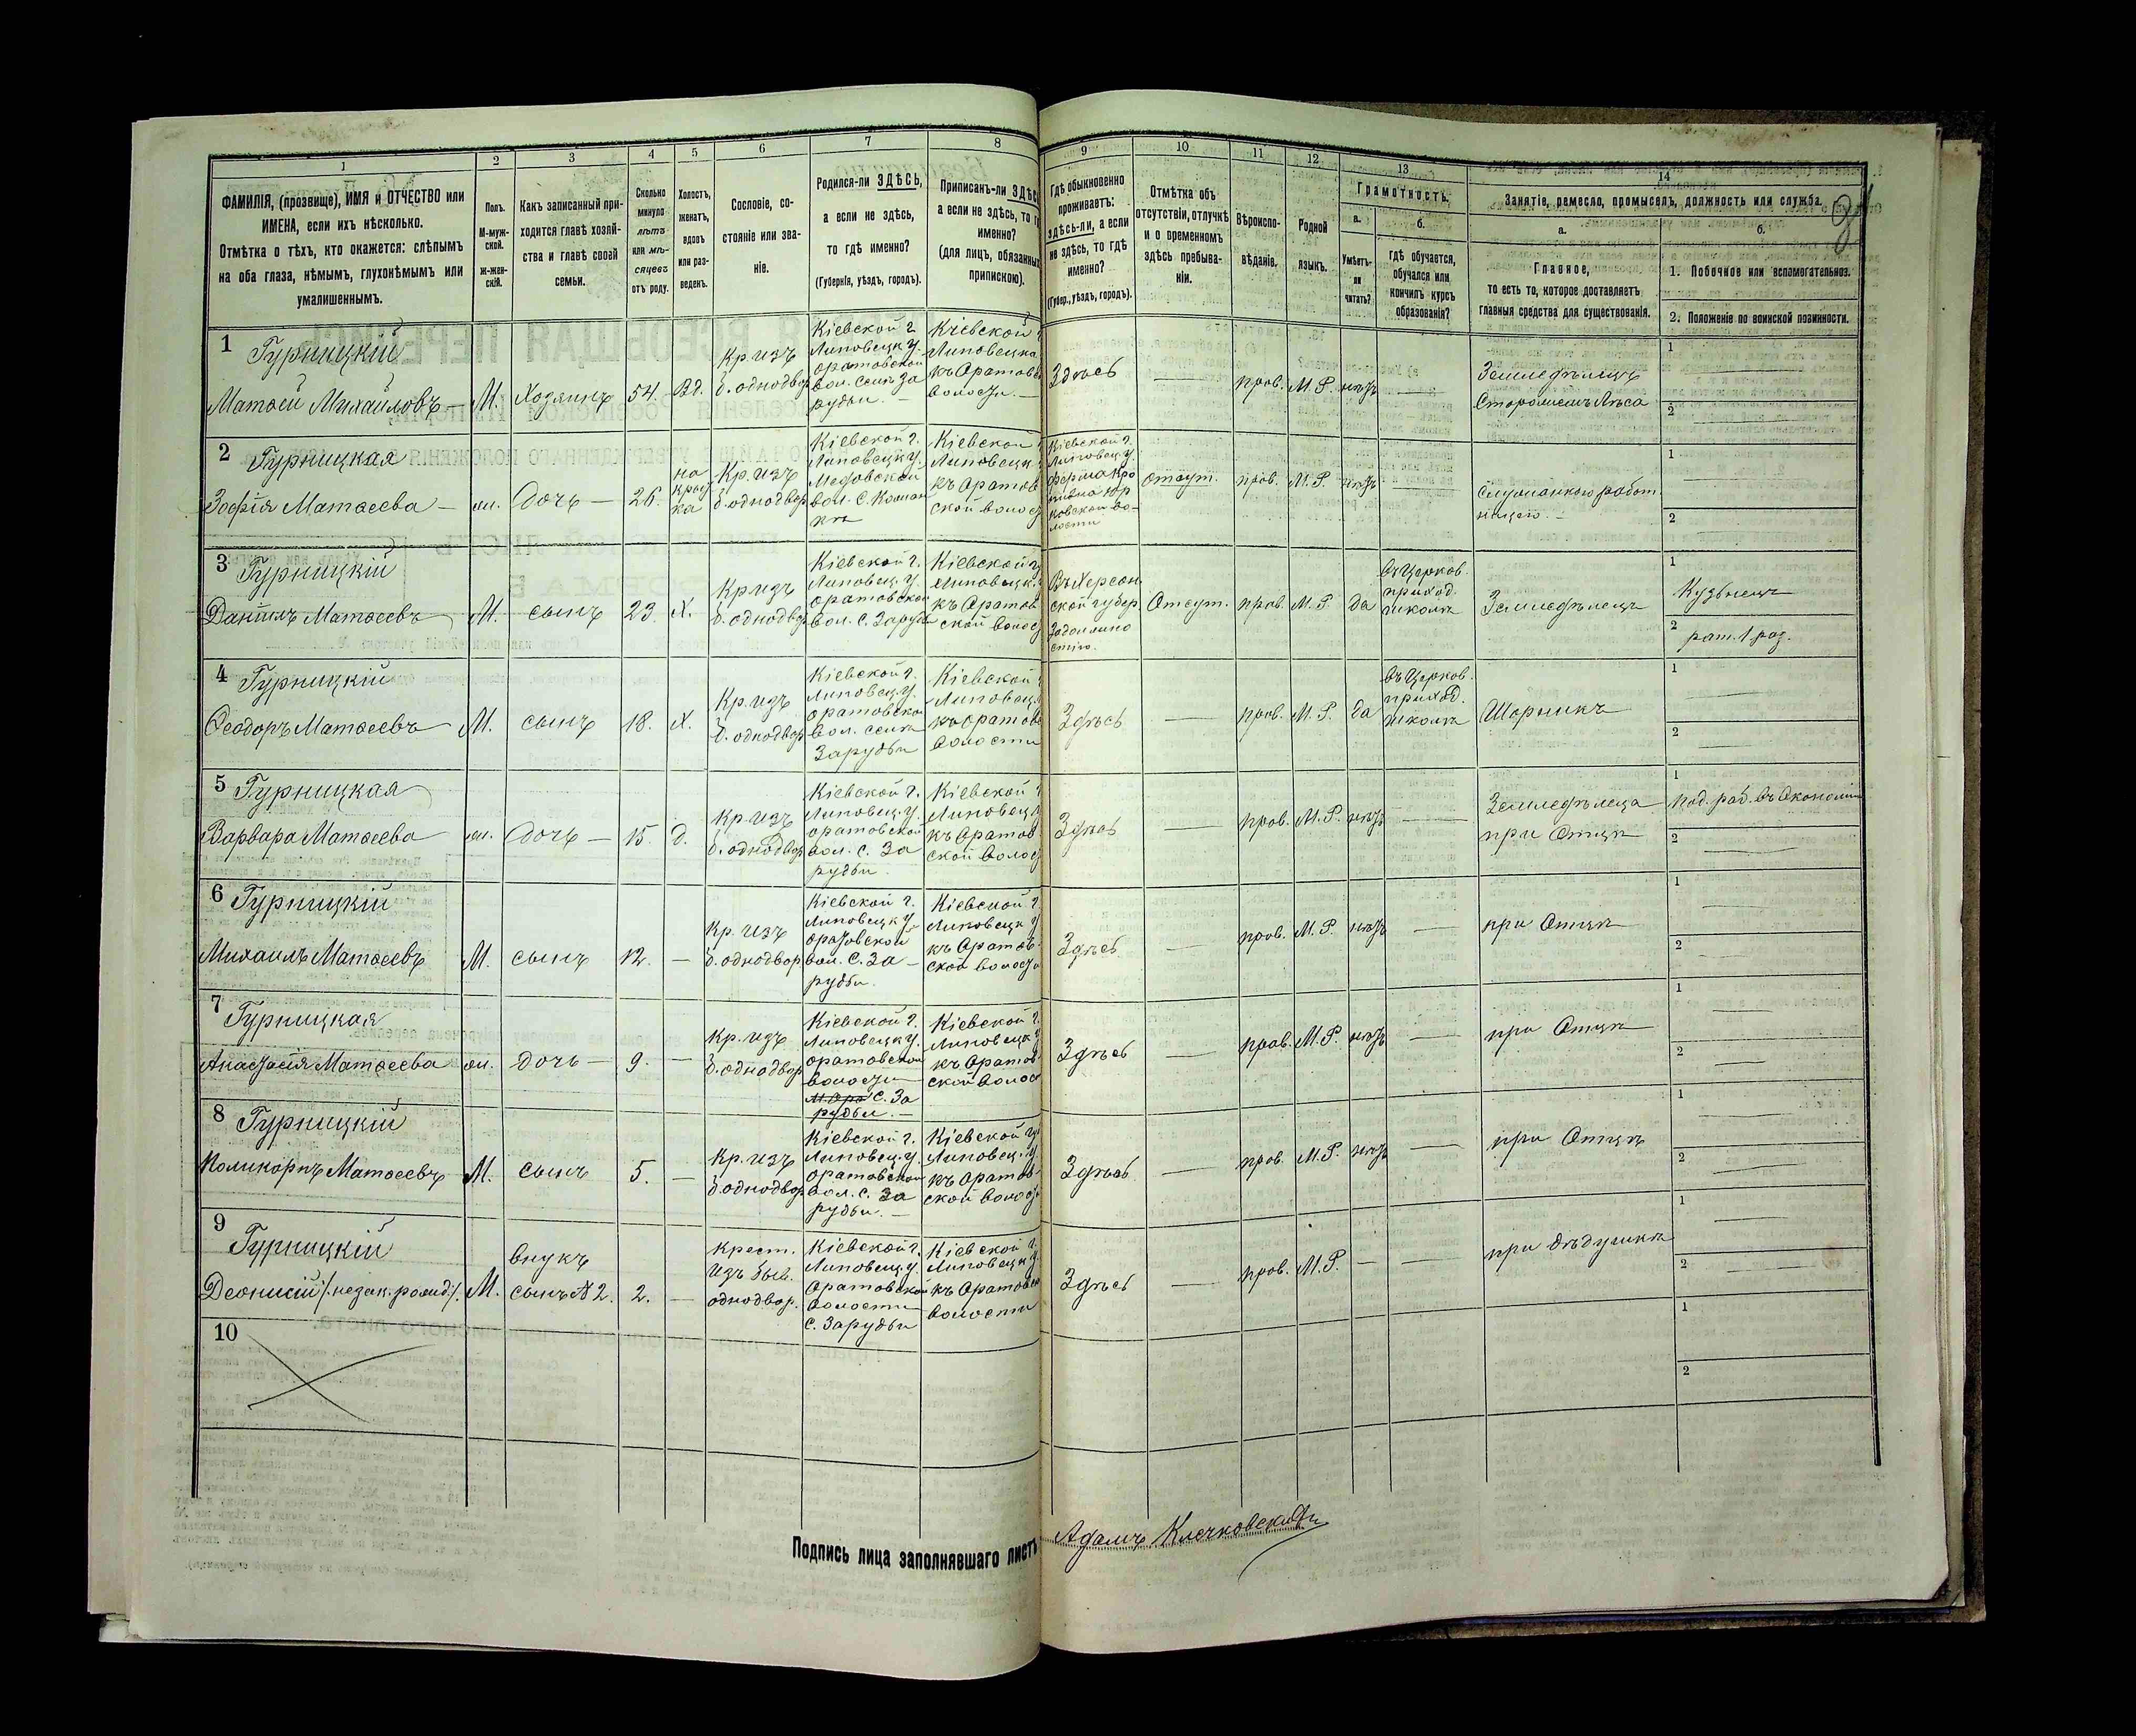 1 2 3 4 5 6 7 8 9 10 11 12 13 14
ФАМИЛІЯ, (прозвище), ИМЯ и ОТЧЕСТВО или
ИМЕНА, если ихъ нѣсколько.
Отмѣтка о тѣхъ, кто окажется: слѣпымъ
на оба глаза, нѣмымъ, глухонѣмымъ или
умалишеннымъ.
Полъ.
М-муж-
ской.
ж-жен-
скій.
Какъ записанный при-
ходится главѣ хозяй-
ства и главѣ своей
семьи.
Сколько
минуло
лѣтъ
или мѣ-
сяцевъ
отъ роду.
Холостъ,
женатъ,
вдовъ
или раз-
веденъ.
Сословіе, со-
стояніе или зва-
ніе.
Родился-ли ЗДѢСЬ,
а если не здѣсь,
то гдѣ именно?
(Губернія, уѣздъ, городъ).
Приписанъ-ли
а если не здѣсь, то
именно?
(для лицъ, обязанныхъ
припискою).
Гдѣ обыкновенно
проживаетъ:
здѣсь-ли, а если
не здѣсь, то гдѣ
именно?
(Губер., уѣздъ, городъ).
Отмѣтка объ
отсутствіи, отлучкѣ
и о временномъ
здѣсь пребыва-
ніи.
Вѣроиспо-
вѣданіе.
Родной
языкъ.
Грамотность.
а.
Умѣетъ-
ли
читать?
б.
гдѣ обучается,
обучался или
кончилъ курсъ
образованія?
Занятіе, ремесло, промыселъ, должность или служба.
а.
Главное,
то есть то, которое доставляетъ
главныя средства для существованія.
б.
1. Побочное или вспомогательное.
2. Положеніе по воинской повинности.
1 Гурницкій
Матѳей Михайловъ
М.
Хозяинъ
54.
Вд.
Кр. изъ
б. однодвор
Кіевской г.
Липовецк у.
оратовской
вол. села За
рудьи
Кіевской
Липовецка
къ Оратовс
волости.
Здѣсь
прав.
М. Р.
нѣтъ
Земледѣлецъ
Сторожемъ лѣса
1
2
2 Гурницкая
Зофія Матѳеева
ж.
дочь
26.
Кр. изъ
б. однодвор
Кіевской г.
Липовецк у.
вол. с.
Кіевской
Липовецк
къ Оратов
ской волост
Кіевской г.
Липовец. у.
ферма
лости
отсут.
прав.
М. Р.
нѣтъ
работ
ницею.
1
2
3 Гурницкій
Даніилъ Матѳеевъ
М.
сынъ
23.
Х.
Кр. изъ
б. однодвор
Кіевской г.
Липовец. у.
оратовской
вол. с. Заруд
Кіевской г
Липовецк.
къ Оратов
ской волост
Въ Херсон
ской губер.
Отсут.
прав.
М. Р.
да
въ Церков.
приход.
школѣ
Земледѣлецъ
1
Кузнецъ
2
рат. 1 раз.
4 Гурницкій
Ѳеодоръ Матѳеевъ
М.
сынъ
18.
Х.
Кр. изъ
б. однодвор
Кіевской г.
Липовец. у.
оратовской
вол. села
Зарудьи
Кіевской
Липовец.
къ Оратов
волости
Здѣсь
прав.
М. Р.
да
въ Церков.
приход.
школѣ
Шорникъ
1
2
5 Гурницкая
Варвара Матѳеева
ж.
дочь
15.
Д.
Кр. изъ
б. однодвор
Кіевской г.
Липовец. у.
оратовской
вол. с. За
рудьи.
Кіевской
Липовец у
къ Оратов
ской волост
Здѣсь
прав.
М. Р.
нѣтъ
Земледѣлица
при Отцѣ
1
под. раб. въ Экономіи
2
6 Гурницкій
Михаилъ Матѳеевъ
М.
сынъ
12.
Кр. изъ
б. однодвор
Кіевской г.
Липовецк у
оратовской
вол. с. За
рудьи.
Кіевской г.
Липовецк у
къ Оратов
ской волост
Здѣсь
прав.
М. Р.
нѣтъ
при Отцѣ
1
2
7 Гурницкая
Анастасія Матѳеева
ж.
дочь
9.
Кр. изъ
б. однодвор
Кіевской г.
Липовецк у.
оратовской
волости
с. За
рудьи.
Кіевской г
Липовецк у
къ Оратов
ской волост
Здѣсь
прав.
М. Р.
нѣтъ
при Отцѣ
1
2
8 Гурницкій
Поликарпъ Матѳеевъ
М.
сынъ
5.
Кр. изъ
б. однодвор
Кіевской г.
Липовец. у.
оратовской
вол. с. За
рудьи.
Кіевской гу
Липовец. у.
къ Оратов
ской волост
Здѣсь
прав.
М. Р.
нѣтъ
при Отцѣ
1
2
9 Гурницкій
Деонисій /:незак. рожд:/.
М.
внукъ
сынъ №2.
2.
Крест.
изъ быв.
однодвор.
Кіевской г.
Липовец. у
Оратовской
волости
с. Зарудьи
Кіевской г.
Липовецк у
къ Оратовс
волости
Здѣсь
прав.
М. Р.
при дѣдушкѣ
1
2
10
1
2
Подпись лица заполнявшаго листъ
Адамъ Клечковскій